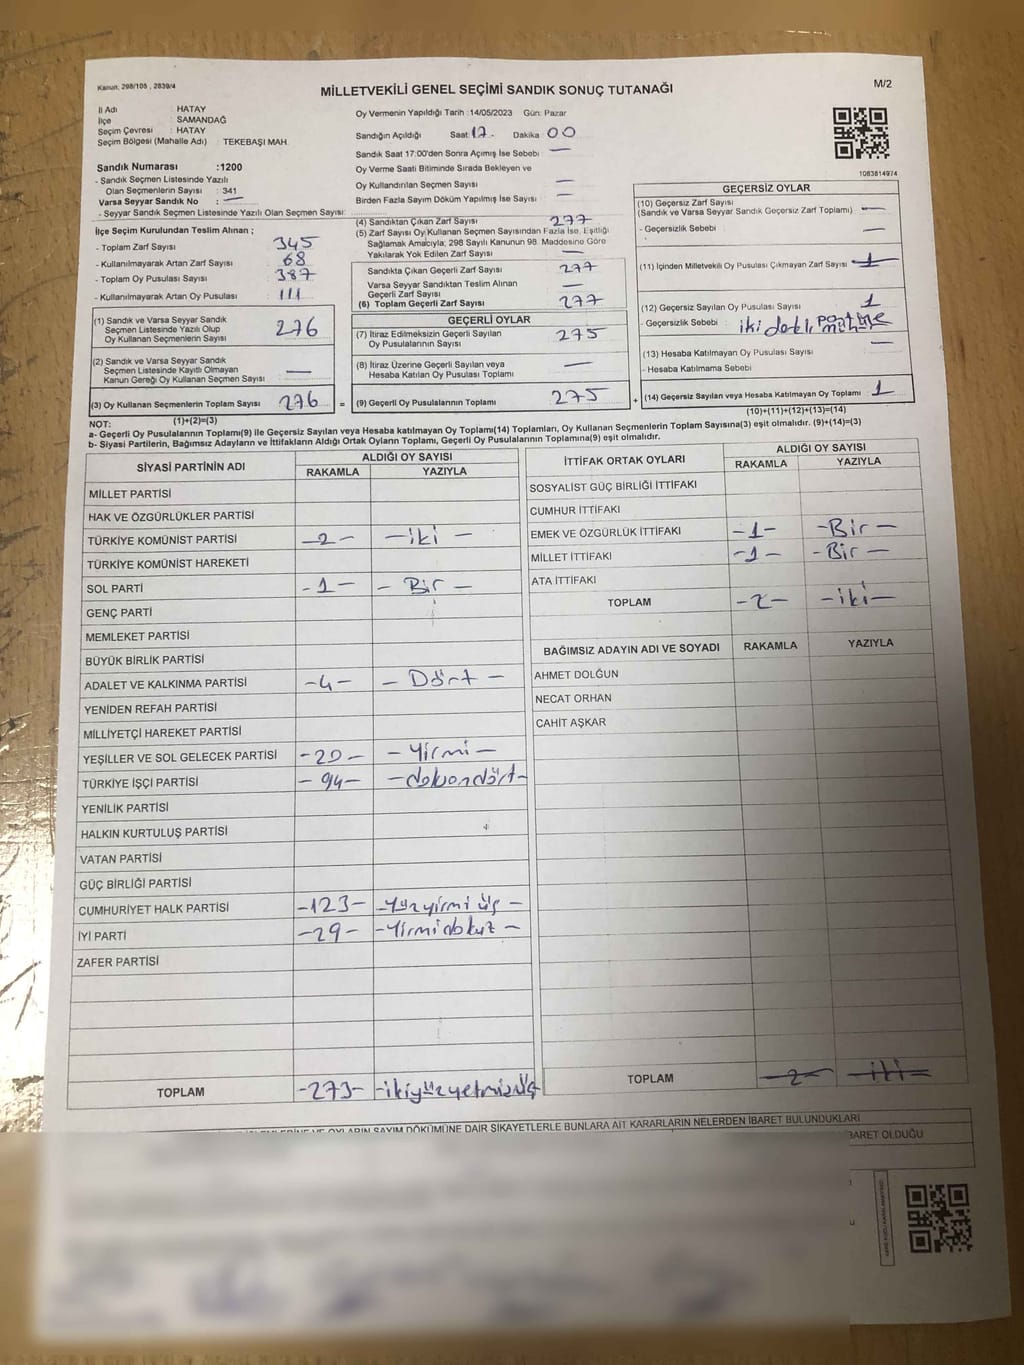 Kanun. 298/105 , 2839/4
MİLLETVEKİLİ GENEL SEÇİMİ SANDIK SONUÇ TUTANAĞI
M/2
İl Adı : HATAY
İlçe : SAMANDAĞ
Seçim Çevresi : HATAY
Seçim Bölgesi (Mahalle Adı) : TEKEBAŞI MAH.
Oy Vermenin Yapıldığı Tarih :14/05/2023 Gün: Pazar
Sandığın Açıldığı Saat:17. Dakika:00
Sandık Saat 17:00'den Sonra Açımış İse Sebebi : —
Oy Verme Saati Bitiminde Sırada Bekleyen ve
Oy Kullandırılan Seçmen Sayısı : —
Birden Fazla Sayım Döküm Yapılmış İse Sayısı : —
1083814974
Sandık Numarası :1200
- Sandık Seçmen Listesinde Yazılı
Olan Seçmenlerin Sayısı : 341
Varsa Seyyar Sandık No : —
- Seyyar Sandık Seçmen Listesinde Yazılı Olan Seçmen Sayısı:
İlçe Seçim Kurulundan Teslim Alınan ;
- Toplam Zarf Sayısı : 345
- Kullanılmayarak Artan Zarf Sayısı : 68
- Toplam Oy Pusulası Sayısı : 387
- Kullanılmayarak Artan Oy Pusulası : 111
(1) Sandık ve Varsa Seyyar Sandık
Seçmen Listesinde Yazılı Olup
Oy Kullanan Seçmenlerin Sayısı : 276
(2) Sandık ve Varsa Seyyar Sandık
Seçmen Listesinde Kayıtlı Olmayan
Kanun Gereği Oy Kullanan Seçmen Sayısı : —
(3) Oy Kullanan Seçmenlerin Toplam Sayısı : 276 =
(1)+(2)=(3)
(4) Sandıktan Çıkan Zarf Sayısı : 277
(5) Zarf Sayısı Oy Kullanan Seçmen Sayısından Fazla İse, Eşitliği
Sağlamak Amacıyla; 298 Sayılı Kanunun 98. Maddesine Göre
Yakılarak Yok Edilen Zarf Sayısı : —
Sandıkta Çıkan Geçerli Zarf Sayısı : 277
Varsa Seyyar Sandıktan Teslim Alınan
Geçerli Zarf Sayısı : —
(6) Toplam Geçerli Zarf Sayısı : 277
GEÇERLİ OYLAR
(7) İtiraz Edilmeksizin Geçerli Sayılan
Oy Pusulalarının Sayısı : 275
(8) İtiraz Üzerine Geçerli Sayılan veya
Hesaba Katılan Oy Pusulası Toplamı : —
(9) Geçerli Oy Pusulalarının Toplamı : 275 +
GEÇERSİZ OYLAR
(10) Geçersiz Zarf Sayısı
(Sandık ve Varsa Seyyar Sandık Geçersiz Zarf Toplamı) : —
- Geçersizlik Sebebi : —
(11) İçinden Milletvekili Oy Pusulası Çıkmayan Zarf Sayısı : 1
(12) Geçersiz Sayılan Oy Pusulası Sayısı : 1
- Geçersizlik Sebebi : iki farklı partiye mühür
(13) Hesaba Katılmayan Oy Pusulası Sayısı : —
- Hesaba Katılmama Sebebi :
(14) Geçersiz Sayılan veya Hesaba Katılmayan Oy Toplamı : 1
(10)+(11)+(12)+(13)=(14)
NOT:
a- Geçerli Oy Pusulalarının Toplamı(9) ile Geçersiz Sayılan veya Hesaba katılmayan Oy Toplamı(14) Toplamları, Oy Kullanan Seçmenlerin Toplam Sayısına(3) eşit olmalıdır. (9)+(14)=(3)
b- Siyasi Partilerin, Bağımsız Adayların ve İttifakların Aldığı Ortak Oyların Toplamı, Geçerli Oy Pusulalarının Toplamına(9) eşit olmalıdır.
SİYASİ PARTİNİN ADI ALDIĞI OY SAYISI
RAKAMLA YAZIYLA
MİLLET PARTİSİ
HAK VE ÖZGÜRLÜKLER PARTİSİ
TÜRKİYE KOMÜNİST PARTİSİ -2- -iki-
TÜRKİYE KOMÜNİST HAREKETİ
SOL PARTİ -1- -Bir-
GENÇ PARTİ
MEMLEKET PARTİSİ
BÜYÜK BİRLİK PARTİSİ
ADALET VE KALKINMA PARTİSİ -4- -Dört-
YENİDEN REFAH PARTİSİ
MİLLİYETÇİ HAREKET PARTİSİ
YEŞİLLER VE SOL GELECEK PARTİSİ -20- -Yirmi-
TÜRKİYE İŞÇİ PARTİSİ -94- -doksandört-
YENİLİK PARTİSİ
HALKIN KURTULUŞ PARTİSİ
VATAN PARTİSİ
GÜÇ BİRLİĞİ PARTİSİ
CUMHURİYET HALK PARTİSİ -123- -Yüzyirmi üç-
İYİ PARTİ -29- -Yirmidokuz-
ZAFER PARTİSİ
TOPLAM -273- -ikiyüzyetmişüç
İTTİFAK ORTAK OYLARI ALDIĞI OY SAYISI
RAKAMLA YAZIYLA
SOSYALİST GÜÇ BİRLİĞİ İTTİFAKI
CUMHUR İTTİFAKI
EMEK VE ÖZGÜRLÜK İTTİFAKI -1- -Bir-
MİLLET İTTİFAKI -1- -Bir-
ATA İTTİFAKI
TOPLAM -2- -iki-
BAĞIMSIZ ADAYIN ADI VE SOYADI RAKAMLA YAZIYLA
AHMET DOLĞUN
NECAT ORHAN
CAHİT AŞKAR
TOPLAM -2- -iki-
OYLARIN SAYIM DÖKÜMÜNE DAİR ŞİKAYETLERLE BUNLARA AİT KARARLARIN NELERDEN İBARET BULUNDUKLARI
İBARET OLDUĞU